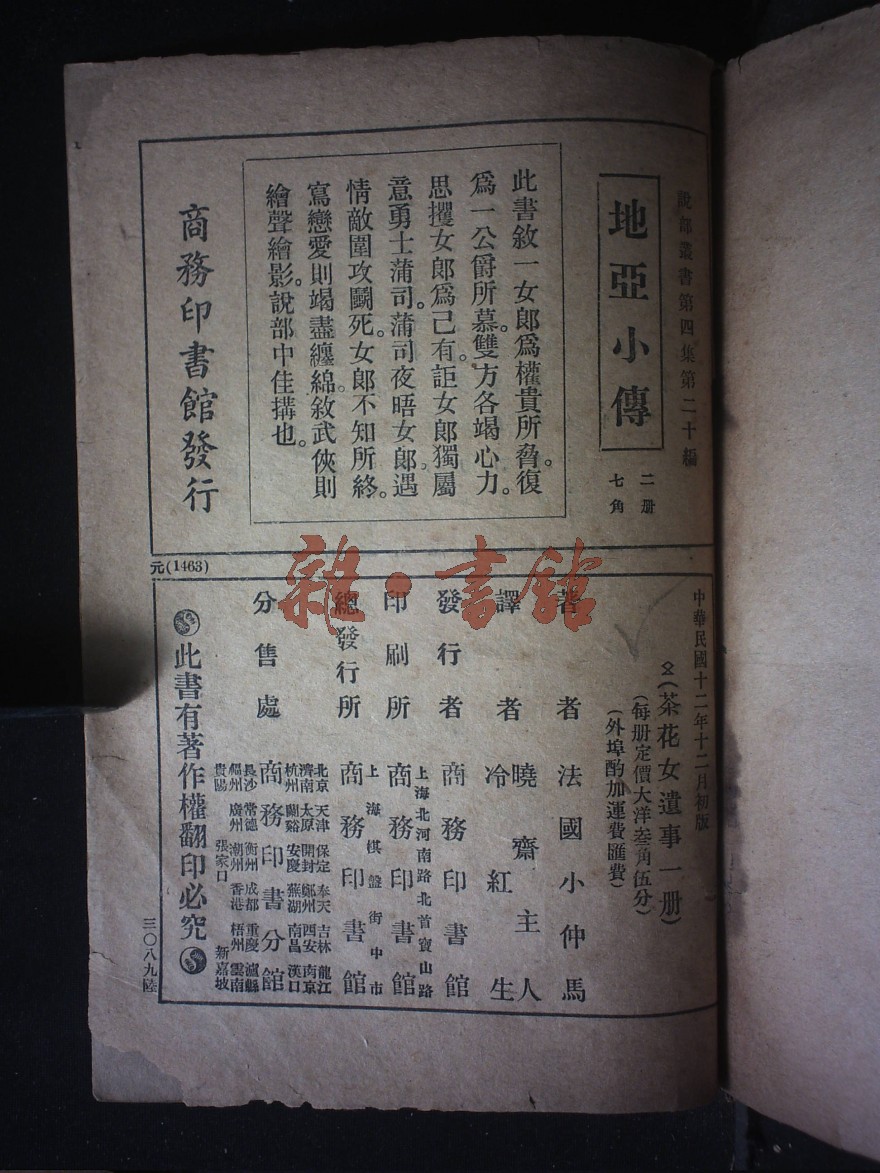 說部叢書第四集第二十編
地亞小傳
二册
七角
此書敘一女郎爲權貴所脅。復
爲一公爵所慕。雙方各竭心力。
思攫女郎爲己有。詎女郎獨屬
意勇士蒲司。蒲司夜晤女郎。遇
情敵圍攻鬭死。女郎不知所終。
寫戀愛則竭盡纏綿。敘武俠則
繪聲繪影。說部中佳搆也。
商務印書館發行
元(1463)
中華民國十二年十二月初版
(茶花女遺事一册)
(每册定價大洋叁角伍分)
(外埠酌加運費匯費)
著者 法國小仲馬
譯者 曉齋主人
冷紅生
發行者 商務印書館
上海北河南路北首寶山路
印刷所 商務印書館
上海棋盤街中市
總發行所 商務印書館
分售處 商務印書分館
北京 天津 保定 奉天 吉林 龍江
濟南 太原 開封 鄭州 西安 南京
杭州 蘭谿 安慶 蕪湖 南昌 漢口
長沙 常德 衡州 成都 重慶 瀘縣
福州 廣州 潮州 香港 梧州 雲南
貴陽 張家口 新嘉坡
此書有著作權翻印必究
三〇八九陸
雜·書館